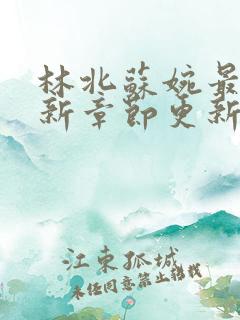 林北蘇婉最
新章節更新
江東孤城
未经同意禁止转载